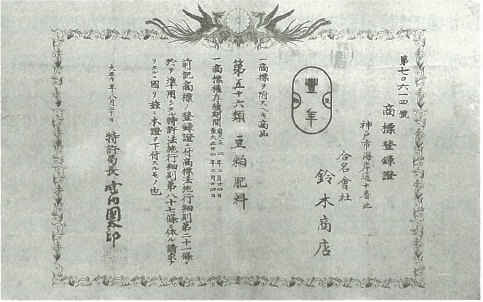 第七〇六一四號
商標登錄證
神戸市海岸通十番地
合名會社
鈴木商店
豐年
一商標ヲ附スヘキ商品
第五十六類 豆粕肥料
一商標權存續期間
前記商標ノ登錄證ニ付商標法施行細則第二十一條ニ
於テ準用シタル特許法施行細則第八十七條ニ係ル請求ア
リタルニ因リ玆ニ本證ヲ下付スルモノ也
特許局長